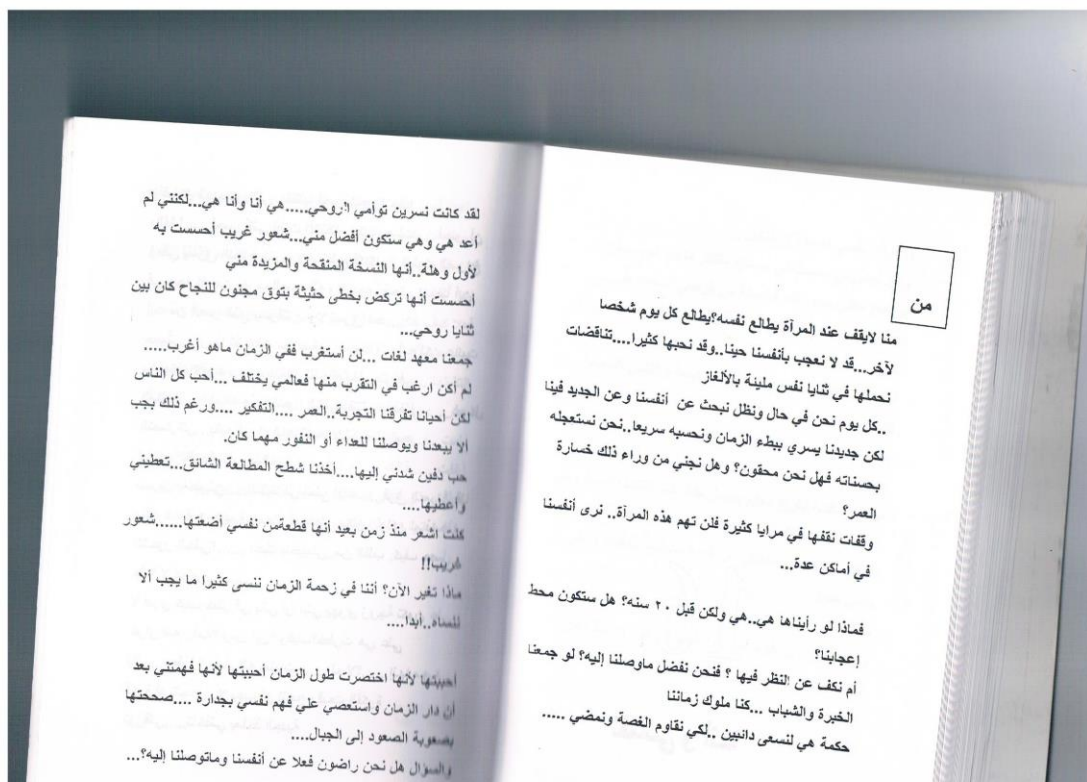 من
منا لايقف عند المرآة يطالع نفسه؟يطالع كل يوم شخصا
لآخر...قد لا نعجب بأنفسنا حينا..وقد نحبها كثيرا....تناقضات
نحملها في ثنايا نفس مليئة بالألغاز
..كل يوم نحن في حال ونظل نبحث عن أنفسنا وعن الجديد فينا
لكن جديدنا يسري ببطء الزمان ونحسبه سريعا..نحن نستعجله
بحسناته فهل نحن محقون؟ وهل نجني من وراء ذلك خسارة
العمر؟
وقفات نقفها في مرايا كثيرة فلن تهم هذه المرآة.. نرى أنفسنا
في أماكن عدة...
فماذا لو رأيناها هي..هي ولكن قبل ٢٠ سنه؟ هل ستكون محط
إعجابنا؟
أم نكف عن النظر فيها ؟ فنحن نفضل ماوصلنا إليه؟ لو جمعنا
الخبرة والشباب ...كنا ملوك زماننا
حكمة هي لنسعى دائبين ..لكي نقاوم الغصة ونمضي .....
لقد كانت نسرين توأمي الروحي.....هي أنا وأنا هي...لكنني لم
أعد هي وهي ستكون أفضل مني...شعور غريب أحسست به
لأول وهلة..أنها النسخة المنقحة والمزيدة مني
أحسست أنها تركض بخطى حثيثة بتوق مجنون للنجاح كان بين
ثنايا روحي...
جمعنا معهد لغات ...لن أستغرب ففي الزمان ماهو أغرب.....
لم أكن ارغب في التقرب منها فعالمي يختلف ...أحب كل الناس
لكن أحيانا تفرقنا التجربة..العمر ....التفكير ....ورغم ذلك يجب
ألا يبعدنا ويوصلنا للعداء أو النفور مهما كان.
حب دفين شدني إليها....أخذنا شطح المطالعة الشائق...تعطيني
وأعطيها....
كنت اشعر منذ زمن بعيد أنها قطعةمن نفسي أضعتها......شعور
غريب!!
ماذا تغير الآن؟ أننا في زحمة الزمان ننسى كثيرا ما يجب ألا
ننساه..أبدا....
أحببتها لأنها اختصرت طول الزمان أحببتها لأنها فهمتني بعد
أن دار الزمان واستعصي علي فهم نفسي بجدارة ....صححتها
بصعوبة الصعود إلى الجبال....
والسؤال هل نحن راضون فعلا عن أنفسنا وماتوصلنا إليه؟...